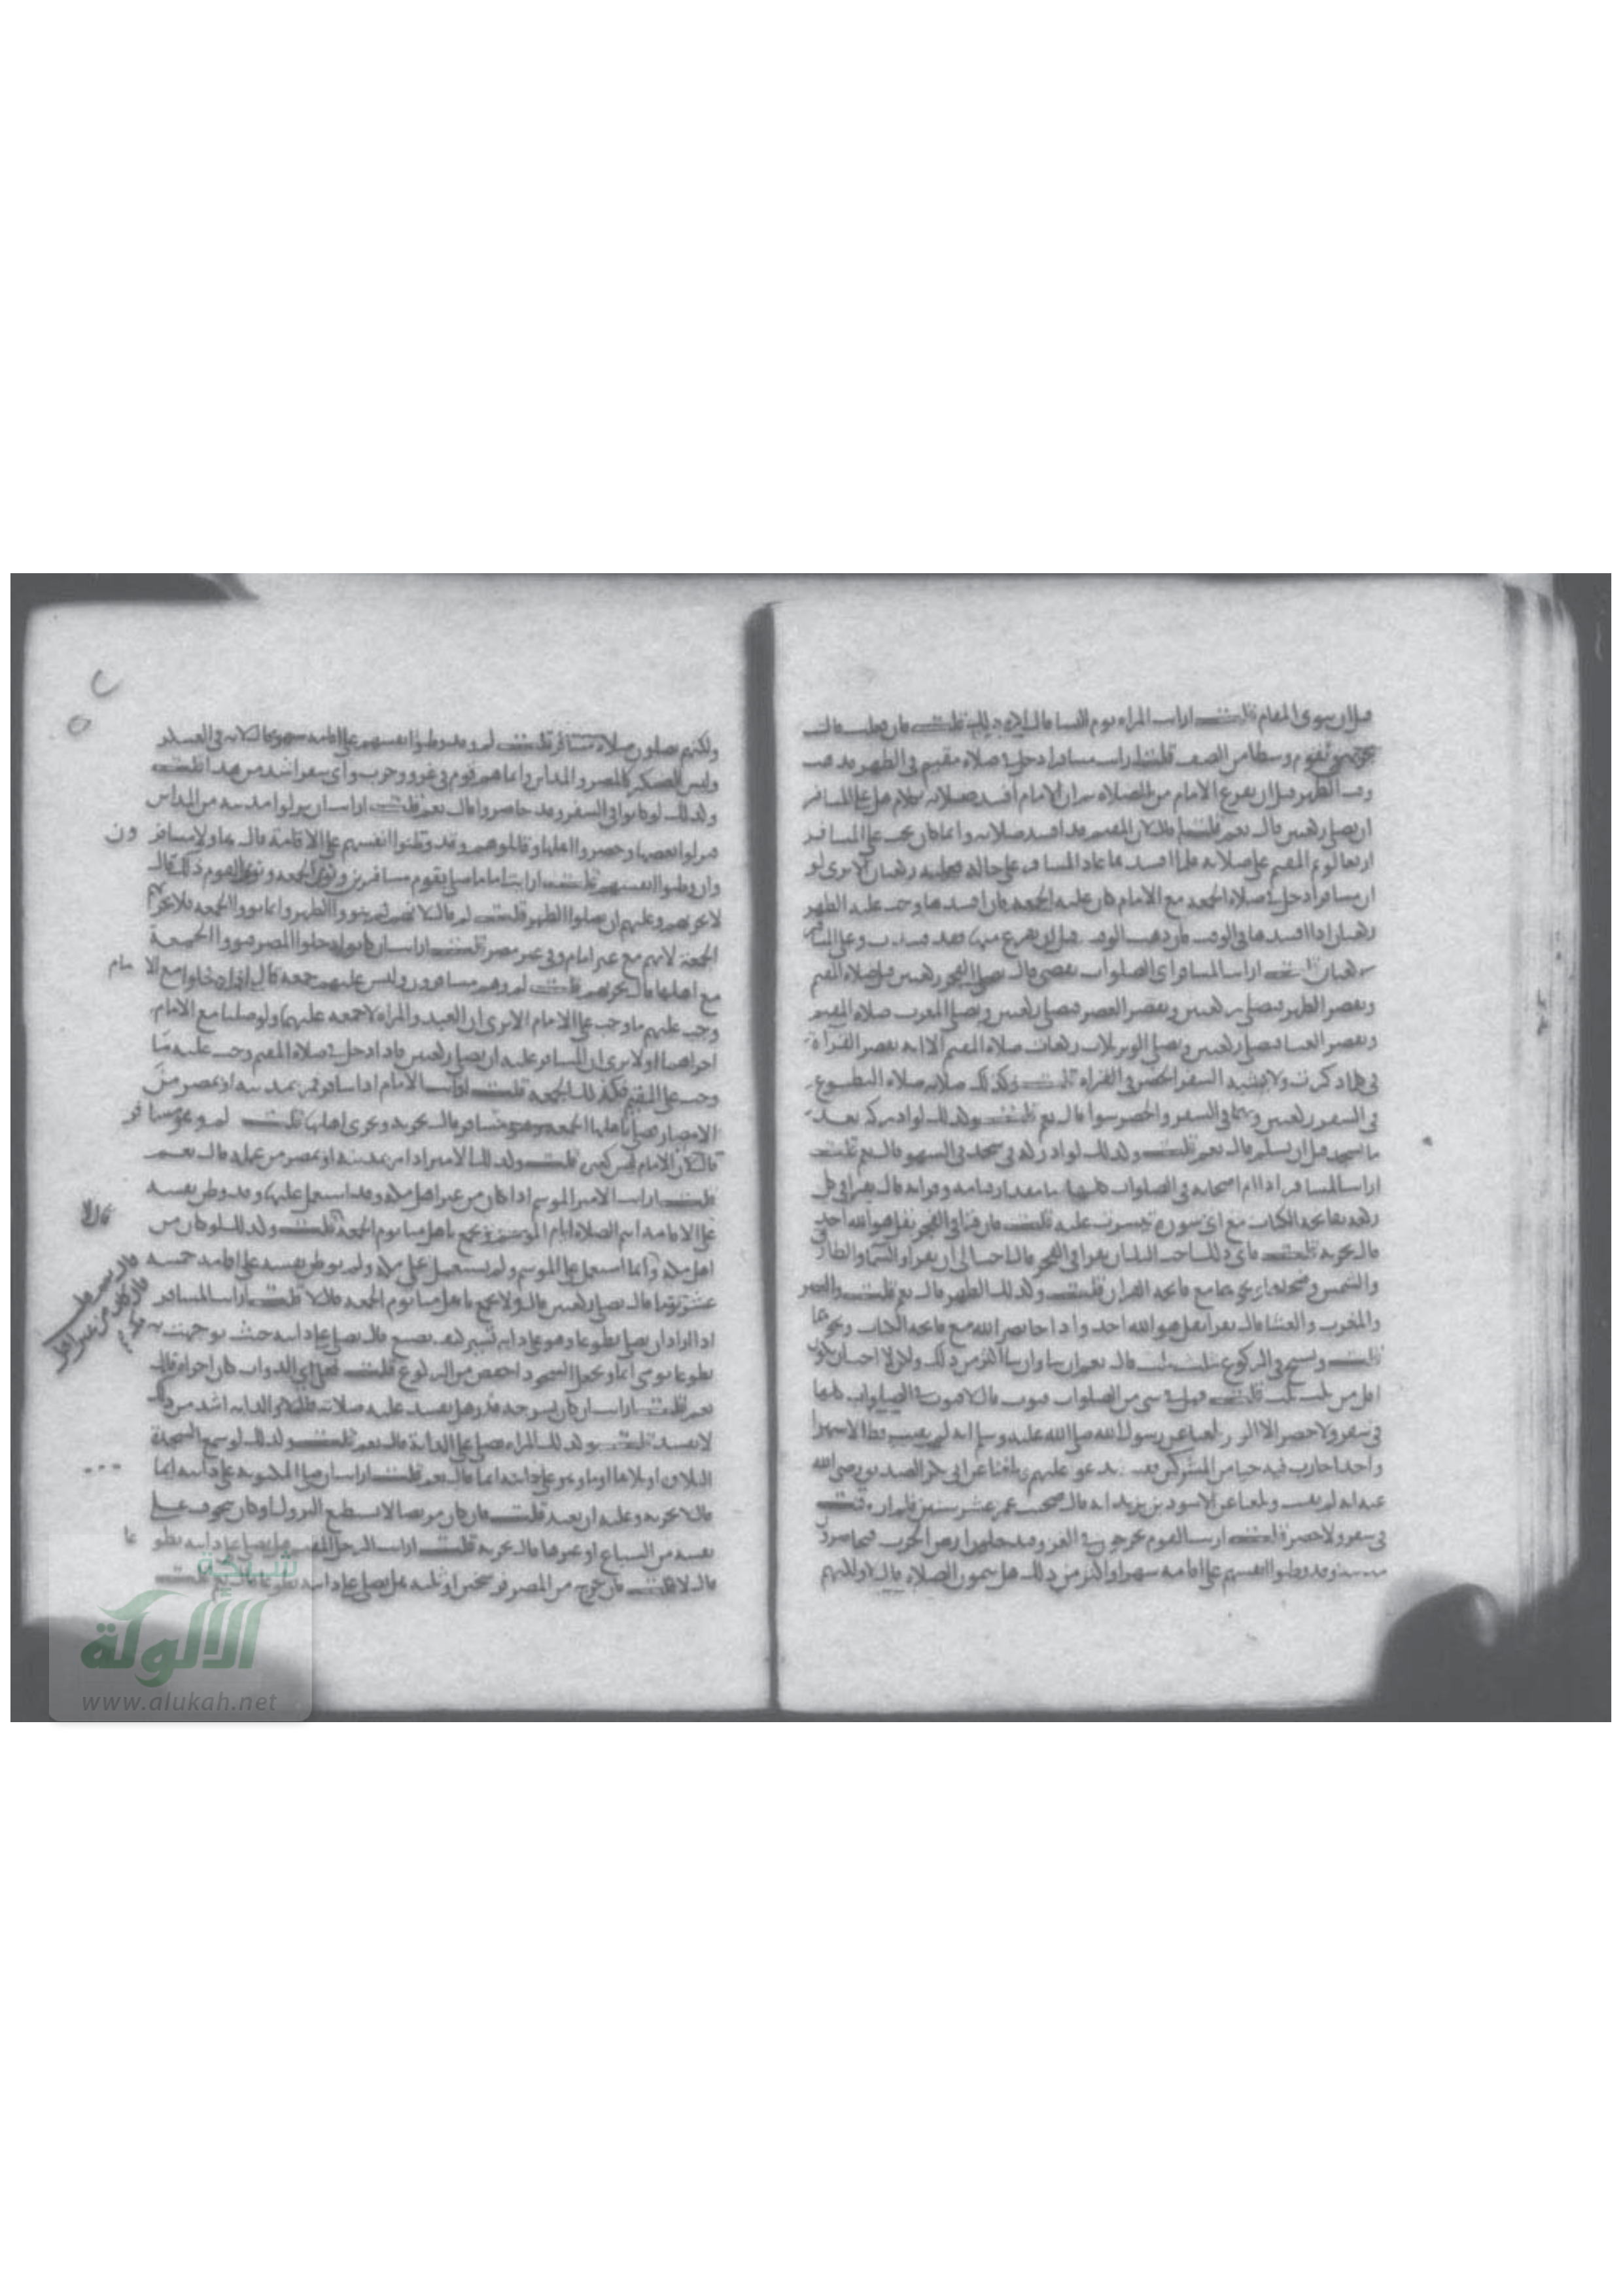 قبل ان ينوي المقام قلت ارايت المراه تؤم النسا قال اكره ذلك قلت فان فعلت قال
يجزيهم وتقوم وسطا من الصف قلت ارايت مسافرا دخل في صلاه مقيم في الظهر فذهب
وقت الظهر قبل ان يفرغ الامام من الصلاه ثم ان الامام افسد صلاته بكلام هل على المسافر
ان يصلي ركعتين قال نعم قلت لم قال لان المقيم قد افسد صلاته وانما كان يجب على المسافر
اربعا لزوم المقيم على صلاته فلما افسدها عاد المسافر على حاله فعليه ركعتان الا ترى لو
ان مسافرا دخل في صلاه الجمعه مع الامام كان عليه الجمعه فان افسدها وجب عليه الظهر
ركعتان اذا افسدها في الوقت فان ذهب الوقت قبل ان يفرغ منها فقد فسدت وعلى المسافر
ركعتان قلت ارايت المسافر اي الصلوات يقصر قال يصلي الفجر ركعتين مثل صلاه المقيم
ويقصر الظهر فيصلي ركعتين ويقصر العصر فيصلي ركعتين ويصلي المغرب صلاه المقيم
ويقصر العشا فيصلي ركعتين ويصلي الوتر ثلاث ركعات صلاه المقيم الا انه يقصر القراه
في كلما ذكرت ولا يشبه السفر الحضر في القراه قلت وكذلك صلاته صلاه التطوع
في السفر ركعتين وهما في السفر والحضر سوا قال نعم قلت وكذلك لو ادركه بعد
ما سجد قبل ان يسلم قال نعم قلت وكذلك لو ادركه في سجدتي السهو قال نعم قلت
ارايت المسافر اذا ام اصحابه في الصلوات كلها ما مقدار قيامه وقراته قال يقرا في كل
ركعه بفاتحه الكتاب مع اي سوره تيسرت عليه قلت فان قرا في الفجر بقل هو الله احد
قال يجزيه قلت فاي ذلك احب اليك ان يقرا في الفجر قال احب الي ان يقرا والسما والطارق
والشمس وضحاها ونحوهما مع فاتحه القران قلت وكذلك الظهر قال نعم قلت والعصر
والمغرب والعشا قال يقرا بقل هو الله احد واذا جا نصر الله مع فاتحه الكتاب ونحوهما
قلت ويسبح في الركوع ثلث ثلث قال نعم ان شا وان شا اكثر من ذلك ولكن لا احب ان يكون
اقل من ثلث ثلث قلت فهل في شي من الصلوات قنوت قال لا قنوت في الصلوات كلها
في سفر ولا حضر الا الوتر بلغنا عن رسول الله صلى الله عليه وسلم انه لم يقنت قط الا شهرا
واحدا حارب فيه حيا من المشركين فقنت يدعو عليهم وبلغنا عن ابي بكر الصديق رضي الله
عنه انه لم يقنت وبلغنا عن الاسود بن يزيد انه قال صحبت عمر عشر سنين فلم اره قنت
في سفر ولا حضر قلت ارايت القوم يخرجون في الغزو وقد دخلوا ارض الحرب فيحاصرون
مدينه وقد وطنوا انفسهم على اقامه شهر او اكثر من ذلك هل يتمون الصلاه قال لا ولكنهم
ولكنهم يصلون صلاه مسافر قلت لم وقد وطنوا انفسهم على اقامه شهر قال لانه في العسكر
وليس العسكر كالمصر والمداين وانما هم قوم في غزو وحرب واي سفر اشد من هذا قلت
وكذلك لو كانوا في السفر وقد حاصروا قال نعم قلت ارايت ان نزلوا مدينه من المداين
فنزلوا بعضها وحصروا اهلها وقاتلوهم وقد وطنوا انفسهم على الاقامة قال هاولا مسافرون
وان وطنوا انفسهم قلت ارايت اماما صلى بقوم مسافرين ونوى الجمعه ونوى القوم ذلك قال
لا يجزيهم وعليهم ان يصلوا الظهر قلت لم قال لانهم لم ينووا الظهر وانما نووا الجمعه فلا يجزيهم
الجمعة لانهم مع غير امام وفي غير مصر قلت ارايت ان كانوا دخلوا المصر فنووا الجمعة
مع اهلها قال يجزيهم قلت لم وهم مسافرون وليس عليهم جمعه قال اذا دخلوا مع الامام
وجب عليهم ما وجب على الامام الا ترى ان العبد والمراه لا جمعه عليهما ولو صليا مع الامام
اجزاهما او لا ترى ان المسافر عليه ان يصلي ركعتين فاذا دخل في صلاه المقيم وجب عليه ما
وجب على المقيم فكذلك الجمعه قلت ارايت الامام اذا سافر فمر بمدينه او بمصر من
الامصار فصلى باهلها الجمعه وهو مسافر قال يجزيه ويجزي اهلها قلت لم وهو مسافر
قال لان الامام ليس كغيره قلت وكذلك الامير اذا مر بمدينه او بمصر من عمله قال نعم
قلت ارايت الامير الموسم اذا كان من غير اهل مكه وقد استعمل عليها وقد وطن نفسه
على الاقامه اتم الصلاه ايام الموسم ويجمع باهل منا يوم الجمعه قلت وكذلك لو كان من
اهل مكه وانما استعمل على الموسم ولم يستعمل على مكه ولم يوطن نفسه على اقامه خمسه
عشر يوما قال يصلي ركعتين قال ولا يجمع باهل منا يوم الجمعه قال لا قلت ارايت المسافر
اذا اراد ان يصلي تطوعا وهو على دابه تسير كيف يصنع قال يصلي على دابته حيث توجهت به
تطوعا يومي ايما ويجعل السجود اخفض من الركوع قلت فعلى اي الدواب كان اجزاه قال
نعم قلت ارايت ان كان بسرجه قذر هل يفسد عليه صلاته قال لا والدابه اشد من ذلك
لا يفسد قلت وكذلك المراه تصلي على الدابة قال نعم قلت وكذلك لو سمع السجدة
التلاوه او تلاها اوما وهو على دابته ايما قال نعم قلت ارايت ان صلى المكتوبه على دابته ايما
قال لا يجزيه وعليه ان يعيد قلت فان كان مريضا لا يستطيع النزول او كان يخوف على
نفسه من السباع او غيرها قال يجزيه قلت ارايت الرجل المقيم هل يصلي على دابته تطوعا
قال لا قلت فان خرج من المصر فرسخين او ثلثه هل يصلي على دابته تطوعا قال نعم قلت
شبكة
الألوكة
www.alukah.net